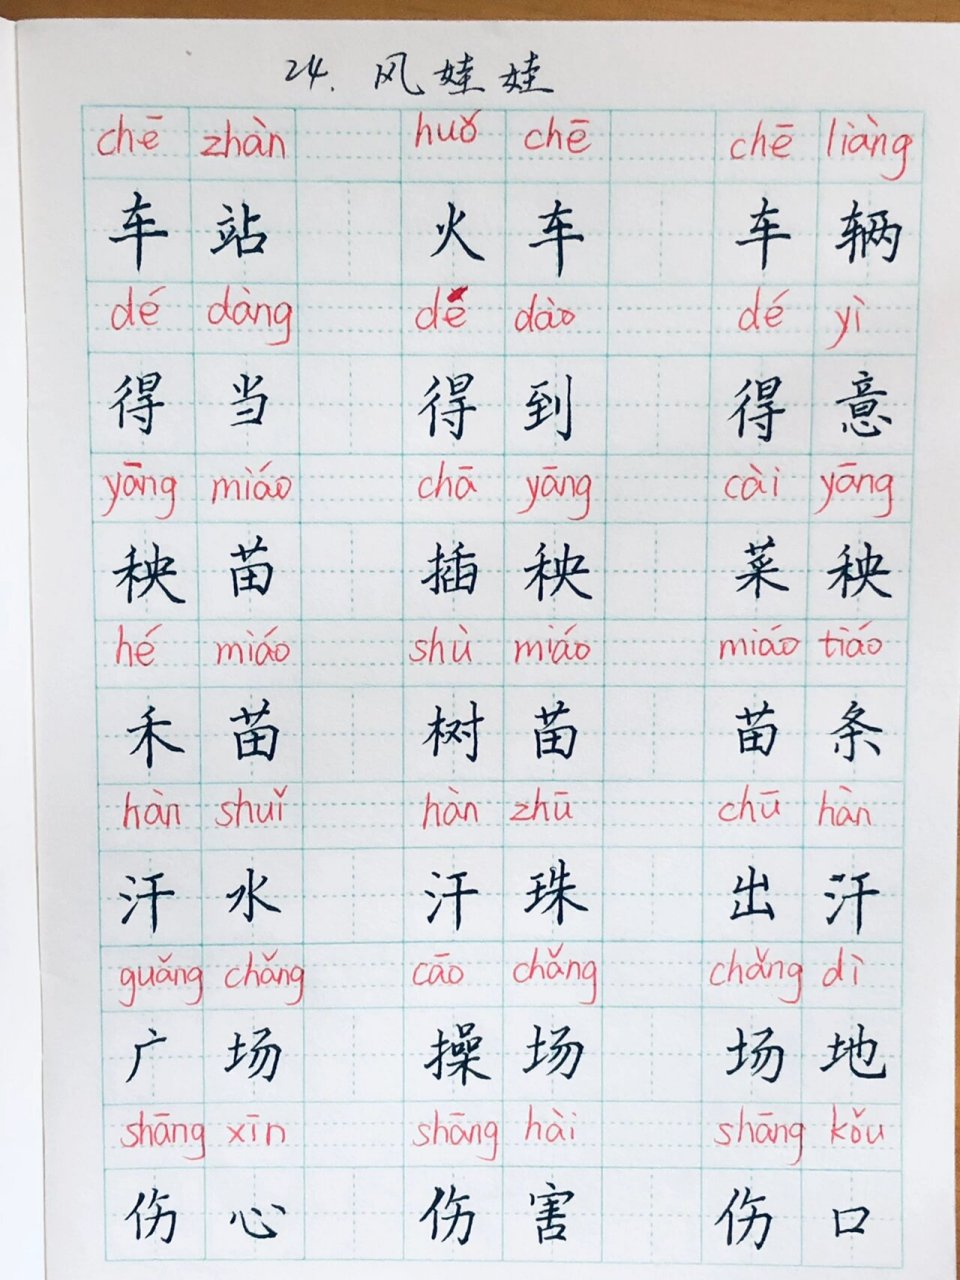 24. 风娃娃
chē zhàn huǒ chē chē liàng
车站 火车 车辆
dé dàng dé dào dé yì
得当 得到 得意
yāng miáo chā yāng cài yāng
秧苗 插秧 菜秧
hé miáo shù miáo miáo tiáo
禾苗 树苗 苗条
hàn shuǐ hàn zhū chū hàn
汗水 汗珠 出汗
guǎng chǎng cāo chǎng chǎng dì
广场 操场 场地
shāng xīn shāng hài shāng kǒu
伤心 伤害 伤口